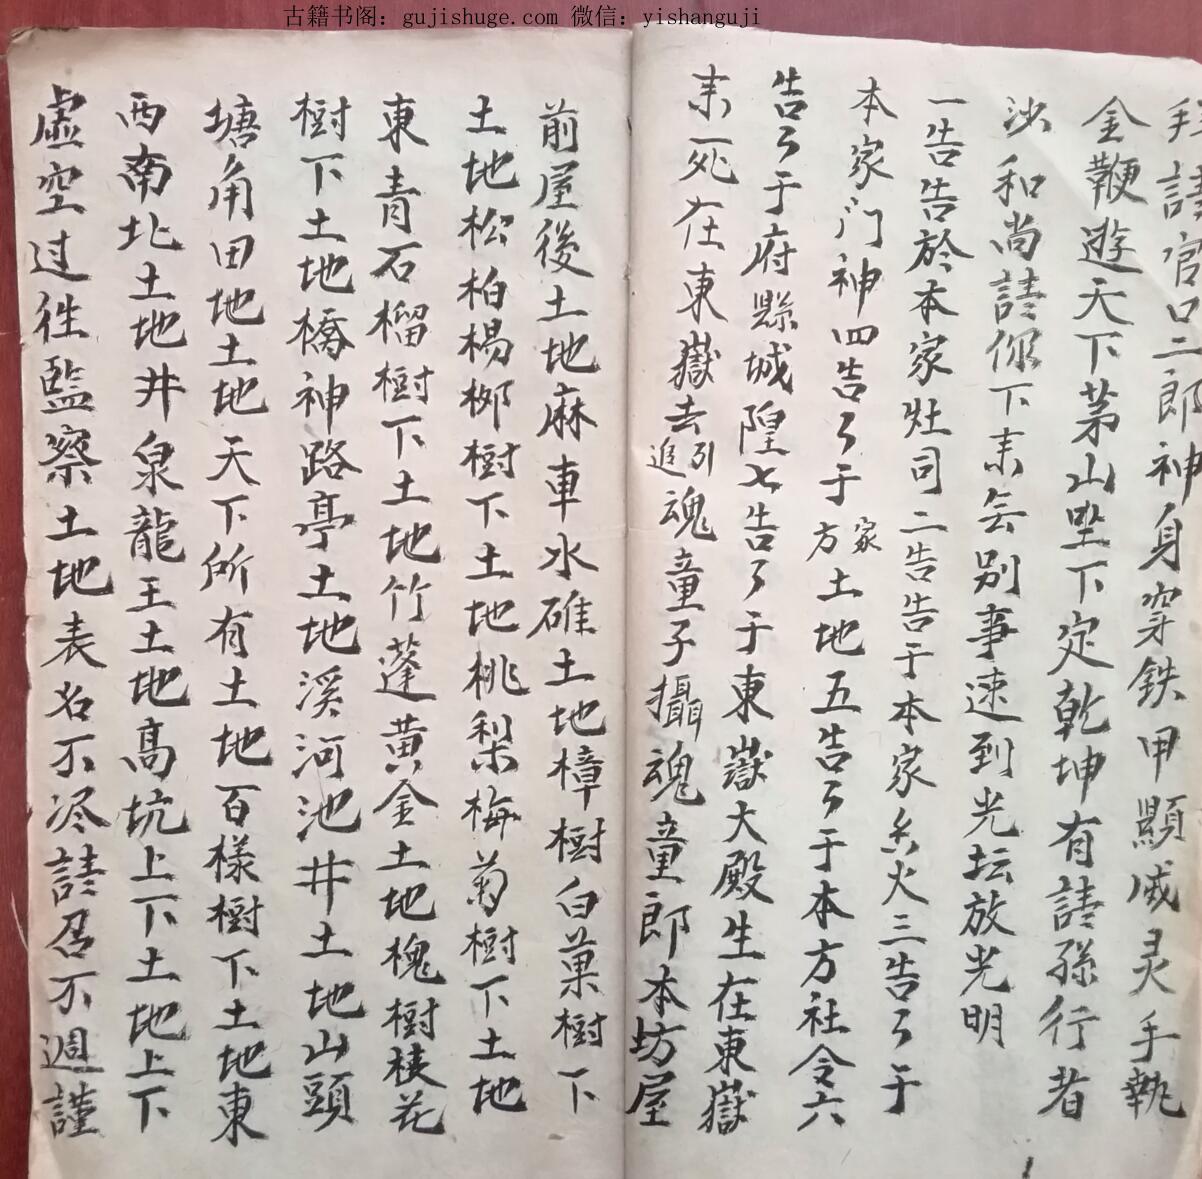 古籍书阁：gujishuge.com 微信：yishanguji
拜請官口二郎神身穿鉄甲顯威灵手執
金鞭遊天下茅山坐下定乾坤有請孫行者
沙和尚請你下来無别事速到光坛放光明
一告告於本家灶司二告告于本家香火三告了于
本家门神四告了于家方土地五告了于本方社令六
告了于府縣城隍七告了于東嶽大殿生在東嶽
来死在東嶽去追引魂童子攝魂童郎本坊屋
前屋後土地麻車水碓土地樟樹白菓樹下
土地松柏楊柳樹下土地桃梨梅菊樹下土地
東青石榴樹下土地竹蓬黄金土地槐樹枝花
樹下土地橋神路亭土地溪河池井土地山頭
塘角田地土地天下所有土地百樣樹下土地東
西南北土地井泉龍王土地高坑上下土地上下
虚空过往監察土地表名不尽請召不週謹